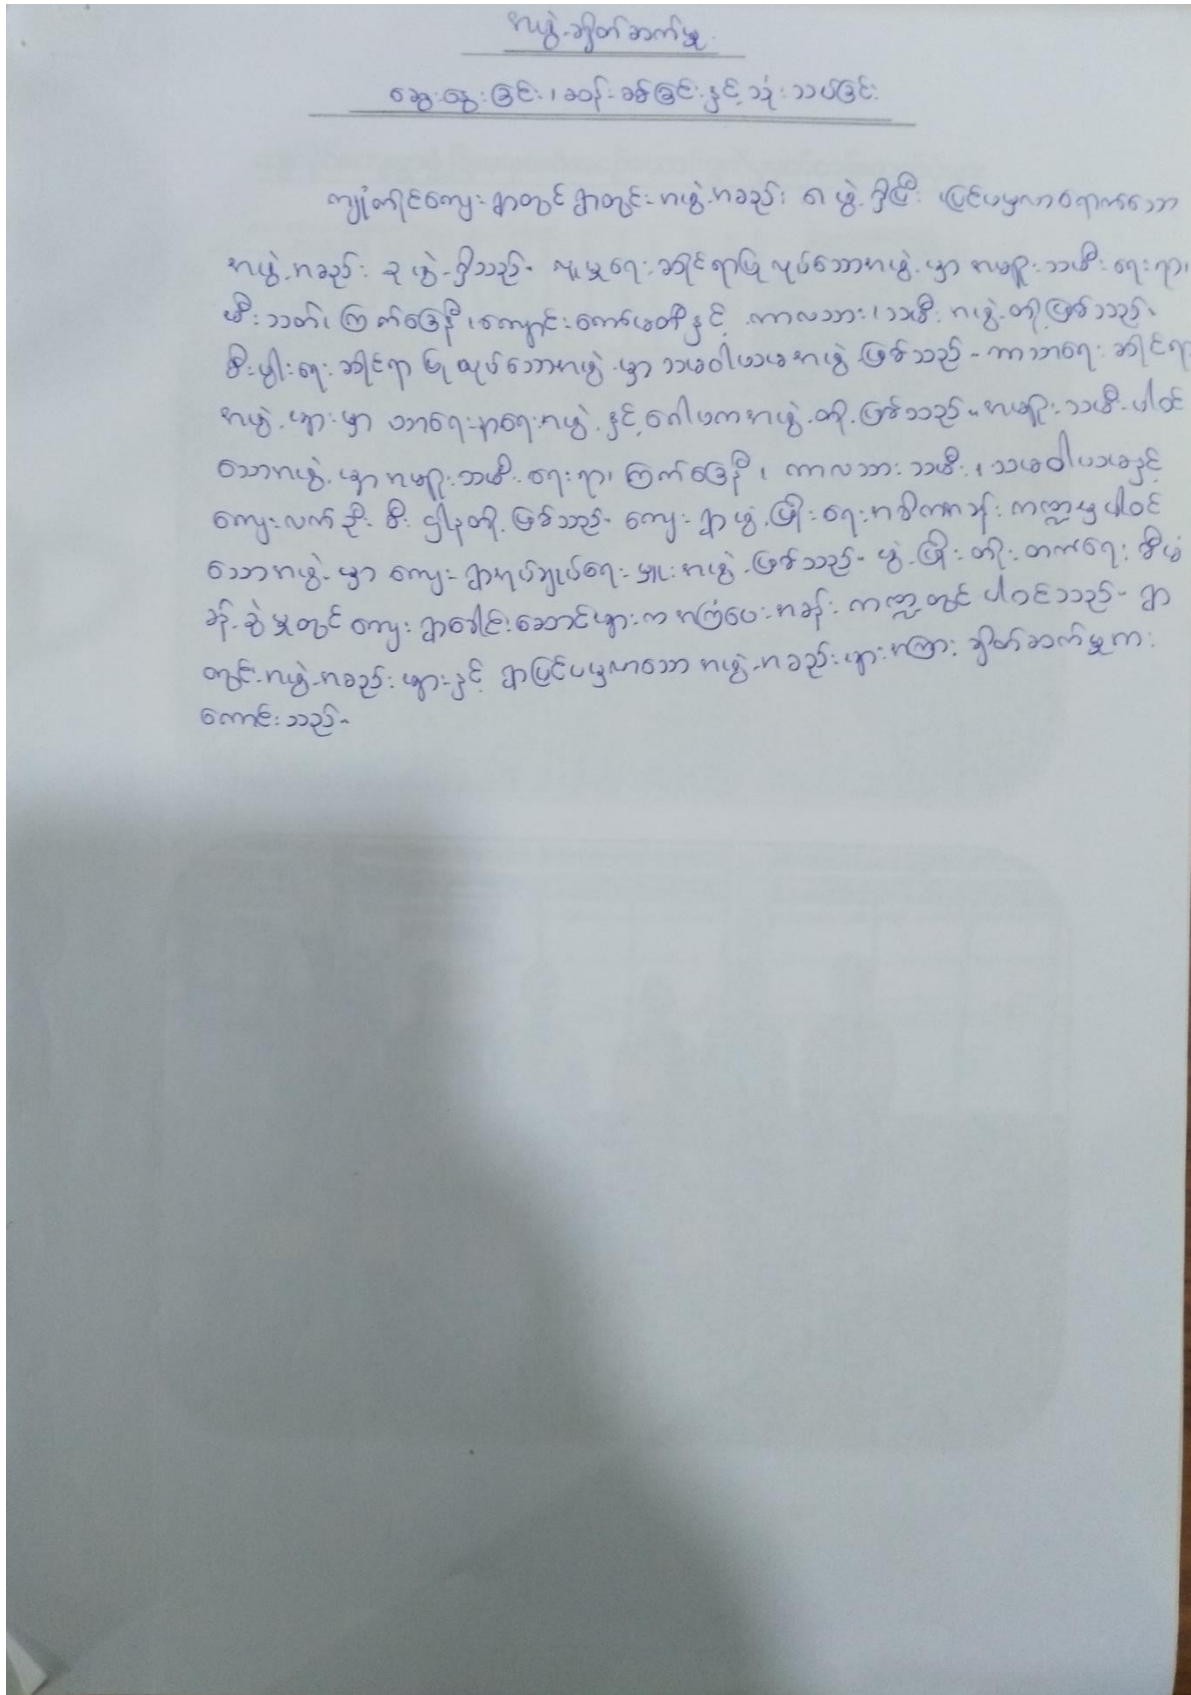 အဖွဲ့ချိတ်ဆက်မှု
ဆွေးနွေးခြင်း၊ ဆန်းစစ်ခြင်းနှင့် သုံးသပ်ခြင်း
ကျုံတိုင်ကျေးရွာတွင် ရွာတွင်းအဖွဲ့အစည်း ၈ ဖွဲ့ရှိပြီး ပြင်ပမှလာရောက်သော
အဖွဲ့အစည်း ၃ ဖွဲ့ရှိသည်။ လူမှုရေးဆိုင်ရာပြုလုပ်သောအဖွဲ့မှာ အမျိုးသမီးရေးရာ၊
မီးသတ်၊ ကြက်ခြေနီ၊ ကျောင်းကော်မတီနှင့် ကာလသား၊ သမီးအဖွဲ့တို့ဖြစ်သည်။
စီးပွါးရေးဆိုင်ရာ ပြုလုပ်သောအဖွဲ့မှာ သမဝါယမအဖွဲ့ဖြစ်သည်။ ဘာသာရေးဆိုင်ရာ
အဖွဲ့များမှာ သာရေးနာရေးအဖွဲ့နှင့် ဂေါပကအဖွဲ့တို့ဖြစ်သည်။ အမျိုးသမီးပါဝင်
သောအဖွဲ့မှာ အမျိုးသမီးရေးရာ၊ ကြက်ခြေနီ၊ ကာလသားသမီး၊ သမဝါယမနှင့်
ကျေးလက်ဦးစီးဌါနတို့ဖြစ်သည်။ ကျေးရွာဖွံ့ဖြိုးရေးအဓိကအခန်းကဏ္ဍမှပါဝင်
သောအဖွဲ့မှာ ကျေးရွာအုပ်ချုပ်ရေးမှူးအဖွဲ့ဖြစ်သည်။ ဖွံ့ဖြိုးတိုးတက်ရေးစီမံ
ခန့်ခွဲမှုတွင် ကျေးရွာခေါင်းဆောင်များက အကြံပေးအခန်းကဏ္ဍတွင် ပါဝင်သည်။ ရွာ
တွင်းအဖွဲ့အစည်းများနှင့် ရွာပြင်ပမှလာသော အဖွဲ့အစည်းများအကြား ချိတ်ဆက်မှုက
ကောင်းသည်။